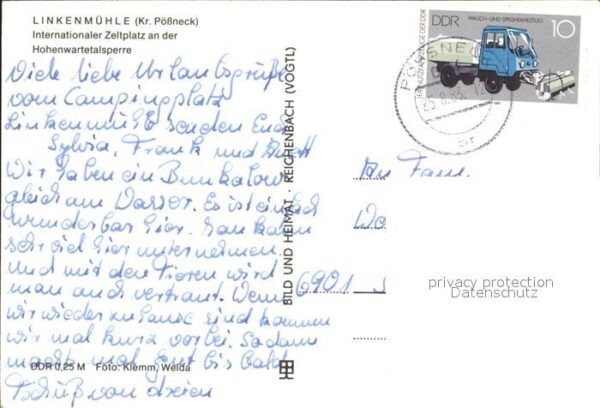 LINKENMÜHLE (Kr. Pößneck)
Internationaler Zeltplatz an der
Hohenwartetalsperre
Viele liebe Urlaubsgrüße
vom Campingplatz
Linkenmühle senden Euch
Sylvia, Frank und
Wir haben ein Bunkalow
gleich am Wasser. Es ist einfach
wunderbar hier. Man kann
sehr viel hier unternehmen.
Und mit den Tieren wird
man auch vertraut. Wenn
wir wieder zuhause sind kommen
wir mal kurz vorbei. So dann
macht mal gut bis bald
Tschüß von dreien
DDR 0,25 M Foto: Klemm, Weida
BILD UND HEIMAT · REICHENBACH (VOGTL)
DDR
WASCH- UND SPRÜHFAHRZEUG
10
NUTZFAHRZEUGE DER DDR
PÖSSNECK
br
An Fam.
6901
privacy protection
Datenschutz